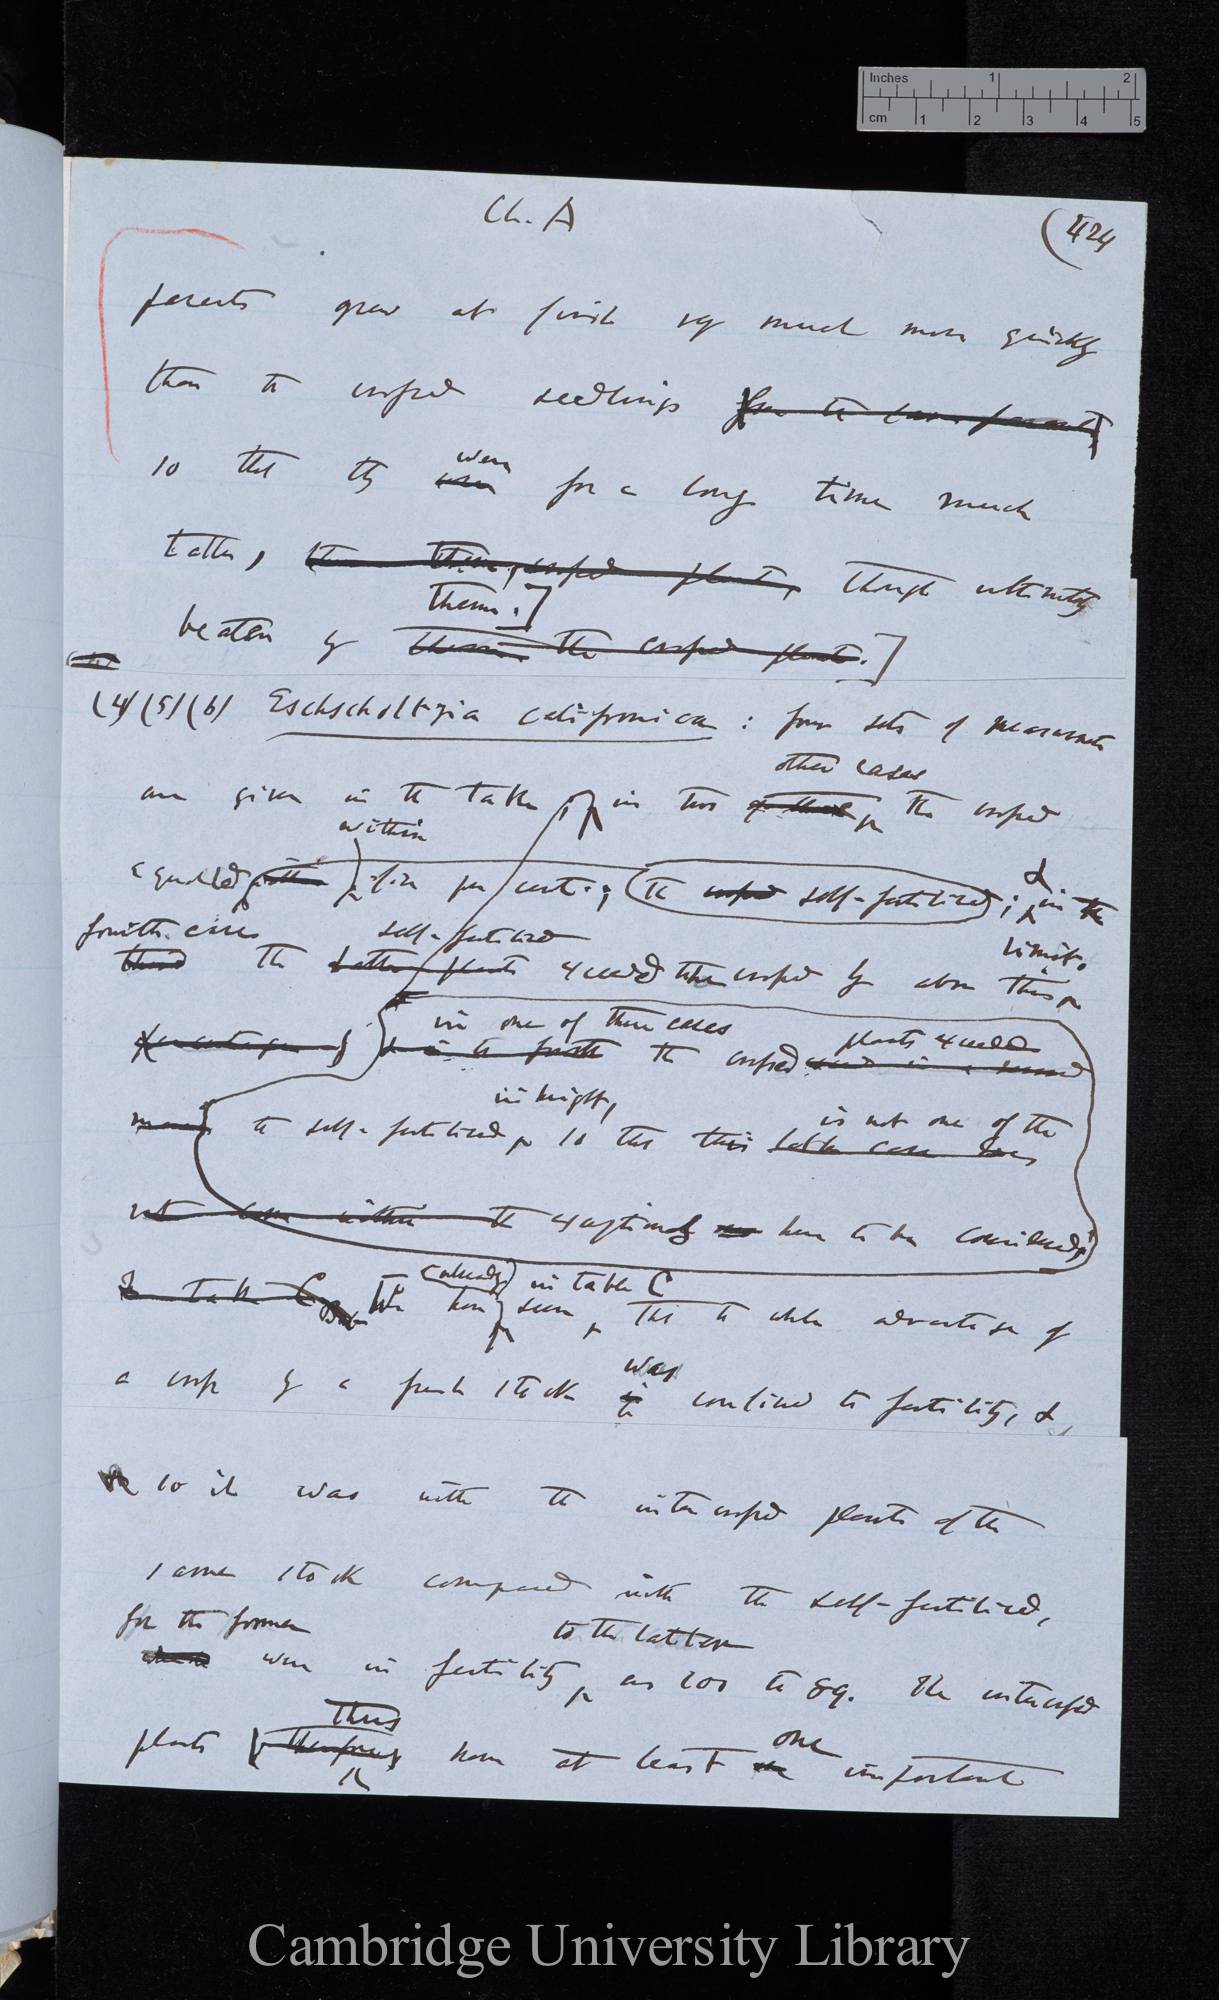 Inches 1 2
cm 1 2 3 4 5
Ch. A
(424
parents grew at first very much more quickly
than the crossed seedlings from the same parents
so that they were for a long time much
taller, though ultimately
them.]
beaten by the crossed plants.]
(4) (5) (6) Eschscholtzia californica : four sets of measurements
other cases
are given in the table; in two the crossed
within
equalled five per cent.; the crossed self-fertilised; & in the
fourth case self-fertilised limits.
third the latter plants exceeded the crossed by above this
in one of these cases plants exceeded
percentage the crossed
in height, is not one of the
the self-fertilised so that this latter case does
not come within the exceptions here to be considered
(already) in table C
In table C We have seen that the whole advantage of
was
a cross by a fresh stock is confined to fertility, &
so it was with the intercrossed plants of the
same stock compared with the self-fertilised,
for the former to the latter
were in fertility as 100 to 89. The intercrossed
thus one
plants therefore have at least one important
Cambridge University Library